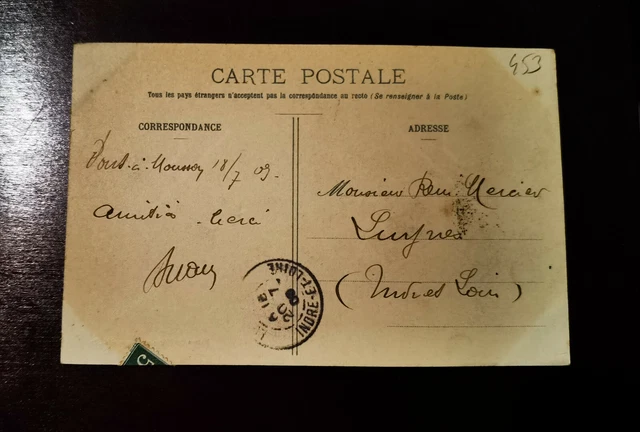 453
CARTE POSTALE
Tous les pays étrangers n'acceptent pas la correspondance au recto (Se renseigner à la Poste)
CORRESPONDANCE
ADRESSE
Pont-à-Mousson 18/7 09.
Amitiés Merci
Monsieur René Mercier
Luynes
(Indre et Loire)
INDRE-ET-LOIRE
20
7
5